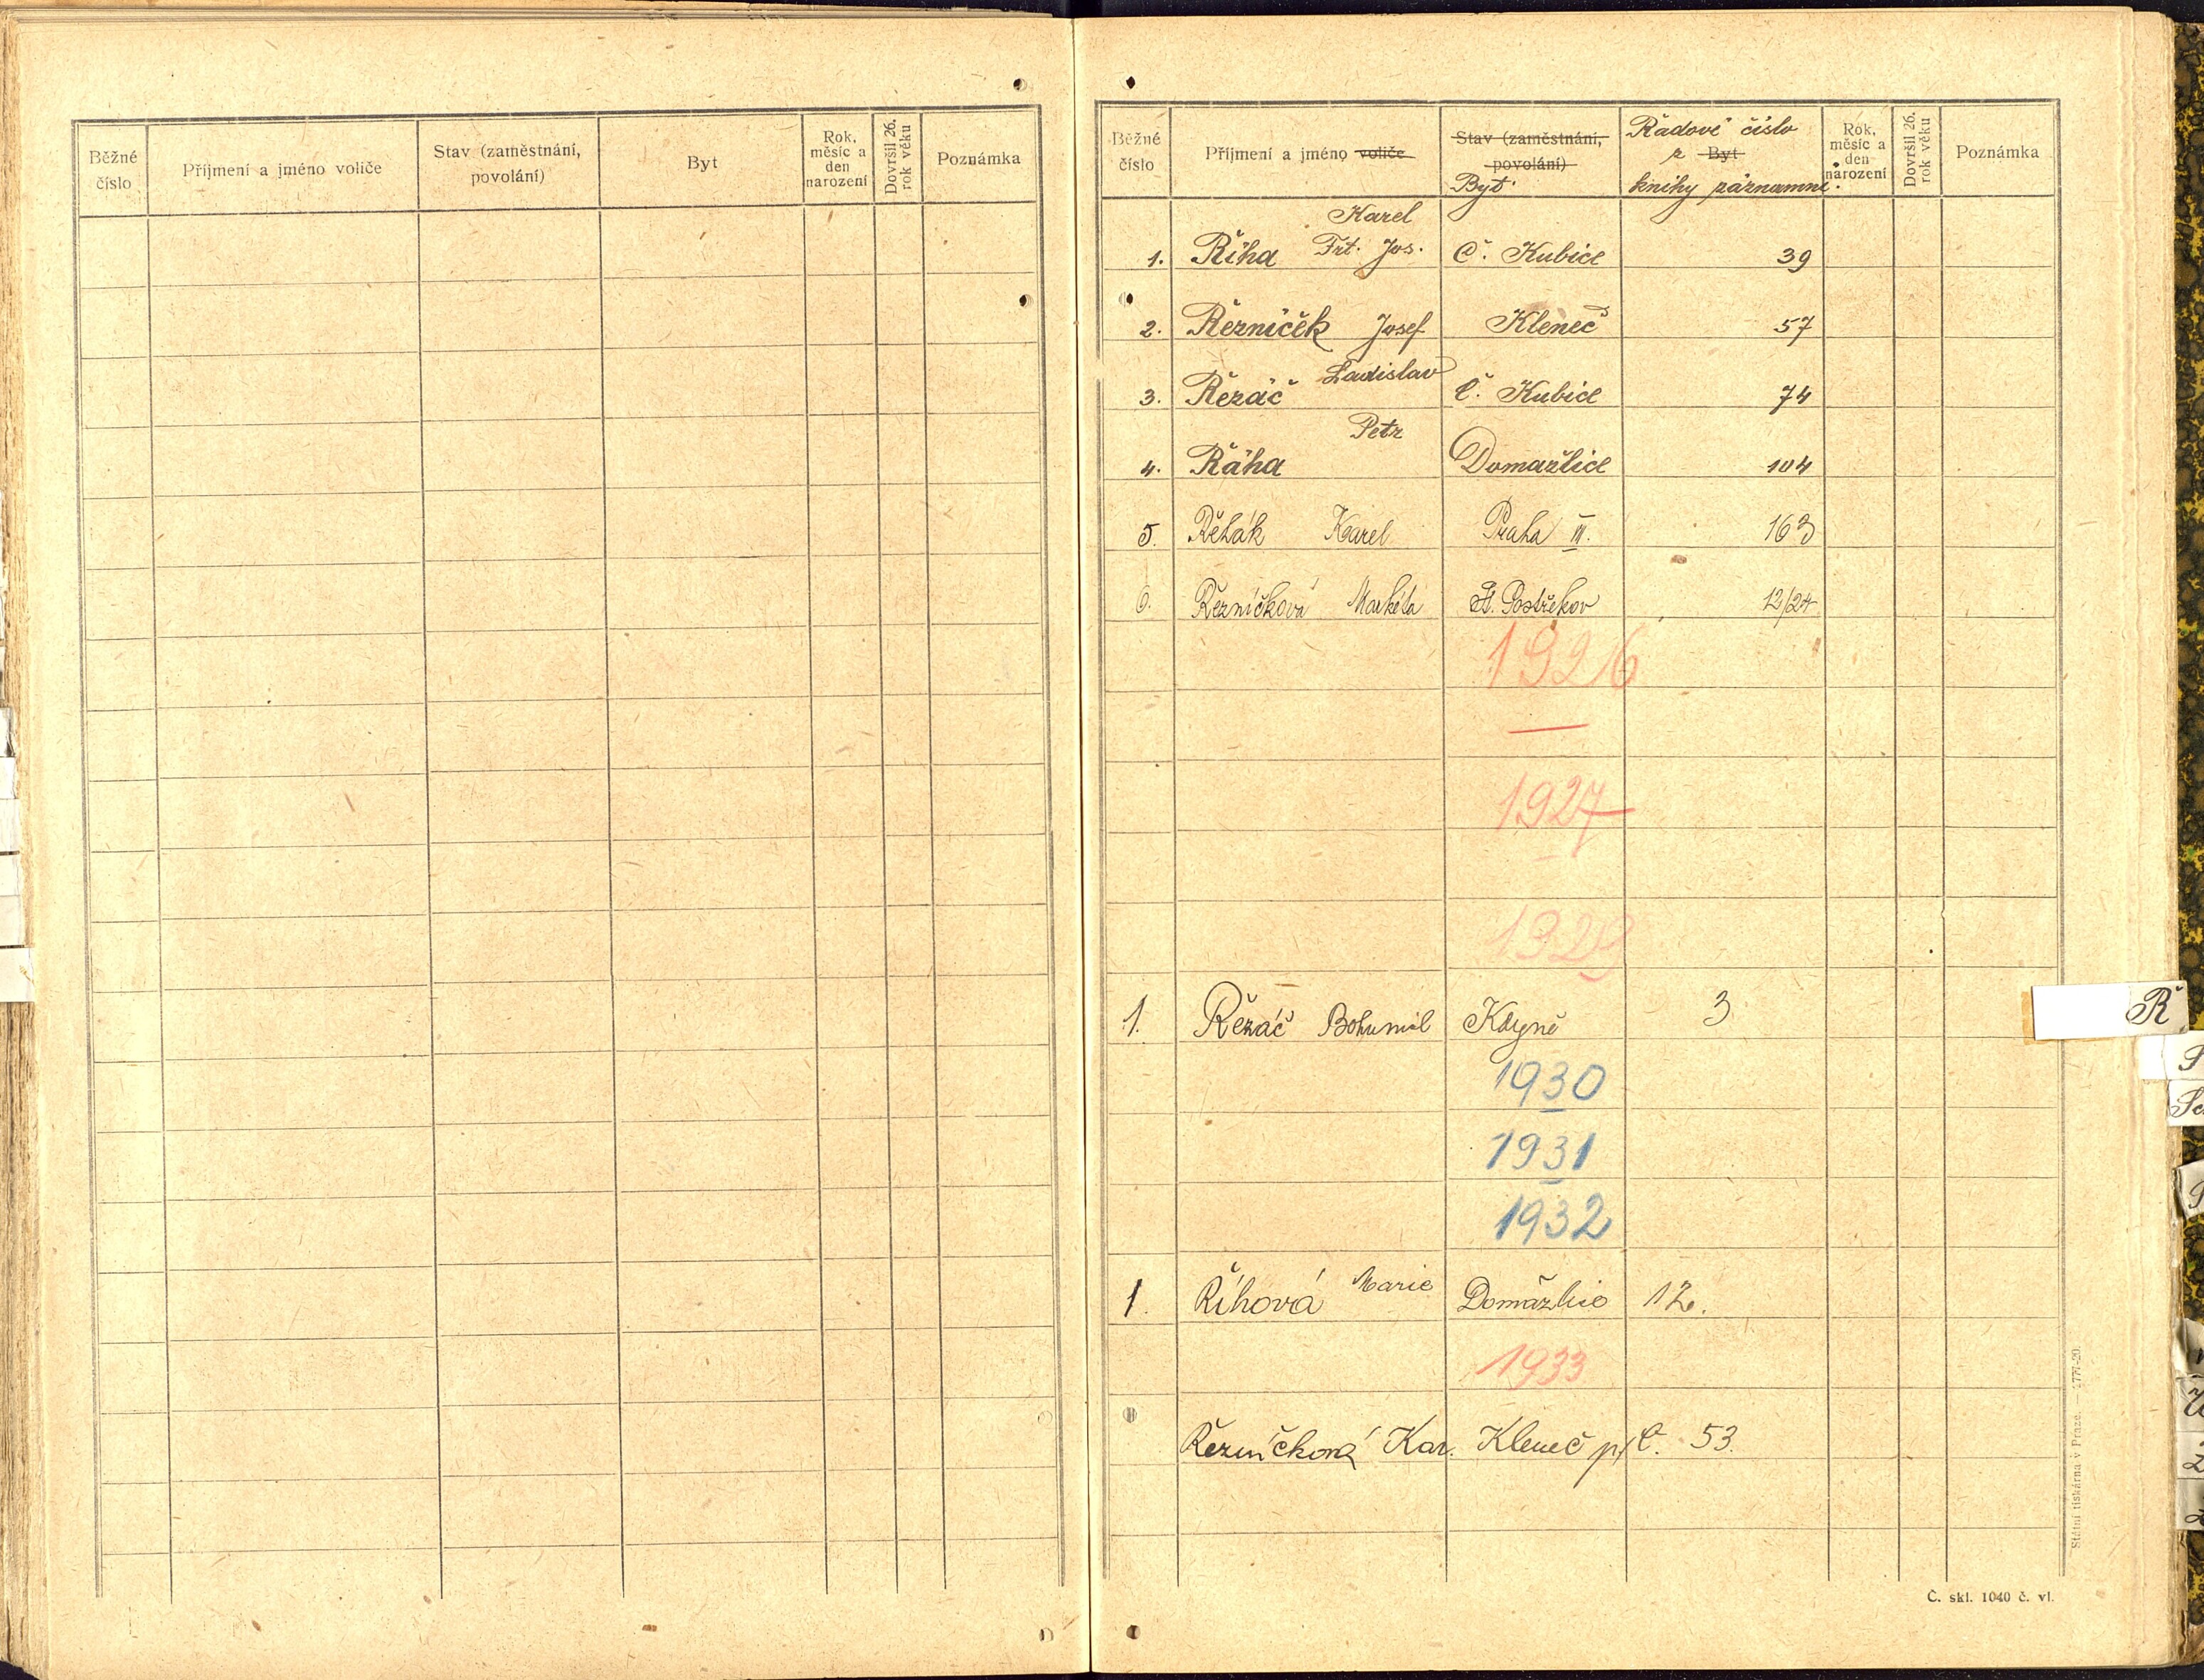 Běžné číslo Příjmení a jméno voliče Stav (zaměstnání, povolání) Byt Rok, měsíc a den narození Dovršil 26. rok věku Poznámka
Běžné číslo Příjmení a jméno voliče Stav (zaměstnání, povolání) Byt Řadové číslo z Byt knihy záznamní. Rok, měsíc a den narození Dovršil 26. rok věku Poznámka
Karel
1. Říha Frt. Jos. Č. Kubice 39
2. Řezníček Josef Kleneč 57
Ladislav
3. Řezáč Č. Kubice 74
Petr
4. Řáha Domažlice 104
5. Řehák Karel Praha III. 163
6. Řezníčková Markéta St. Postřekov 12/24
1926
1927
1929
1. Řezáč Bohumil Kdyně 3
Ř
1930
1931
1932
1. Říhová Marie Domažlice 12.
1933
Řezníčková Kar. Kleneč p/ č. 53.
Státní tiskárna v Praze. — 2777-20.
Č. skl. 1040 č. vl.